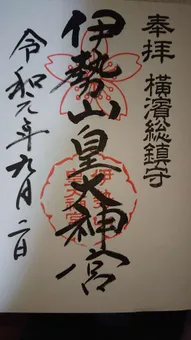 奉拝 横濱総鎮守
伊勢山皇大神宮
令和元年九月二日